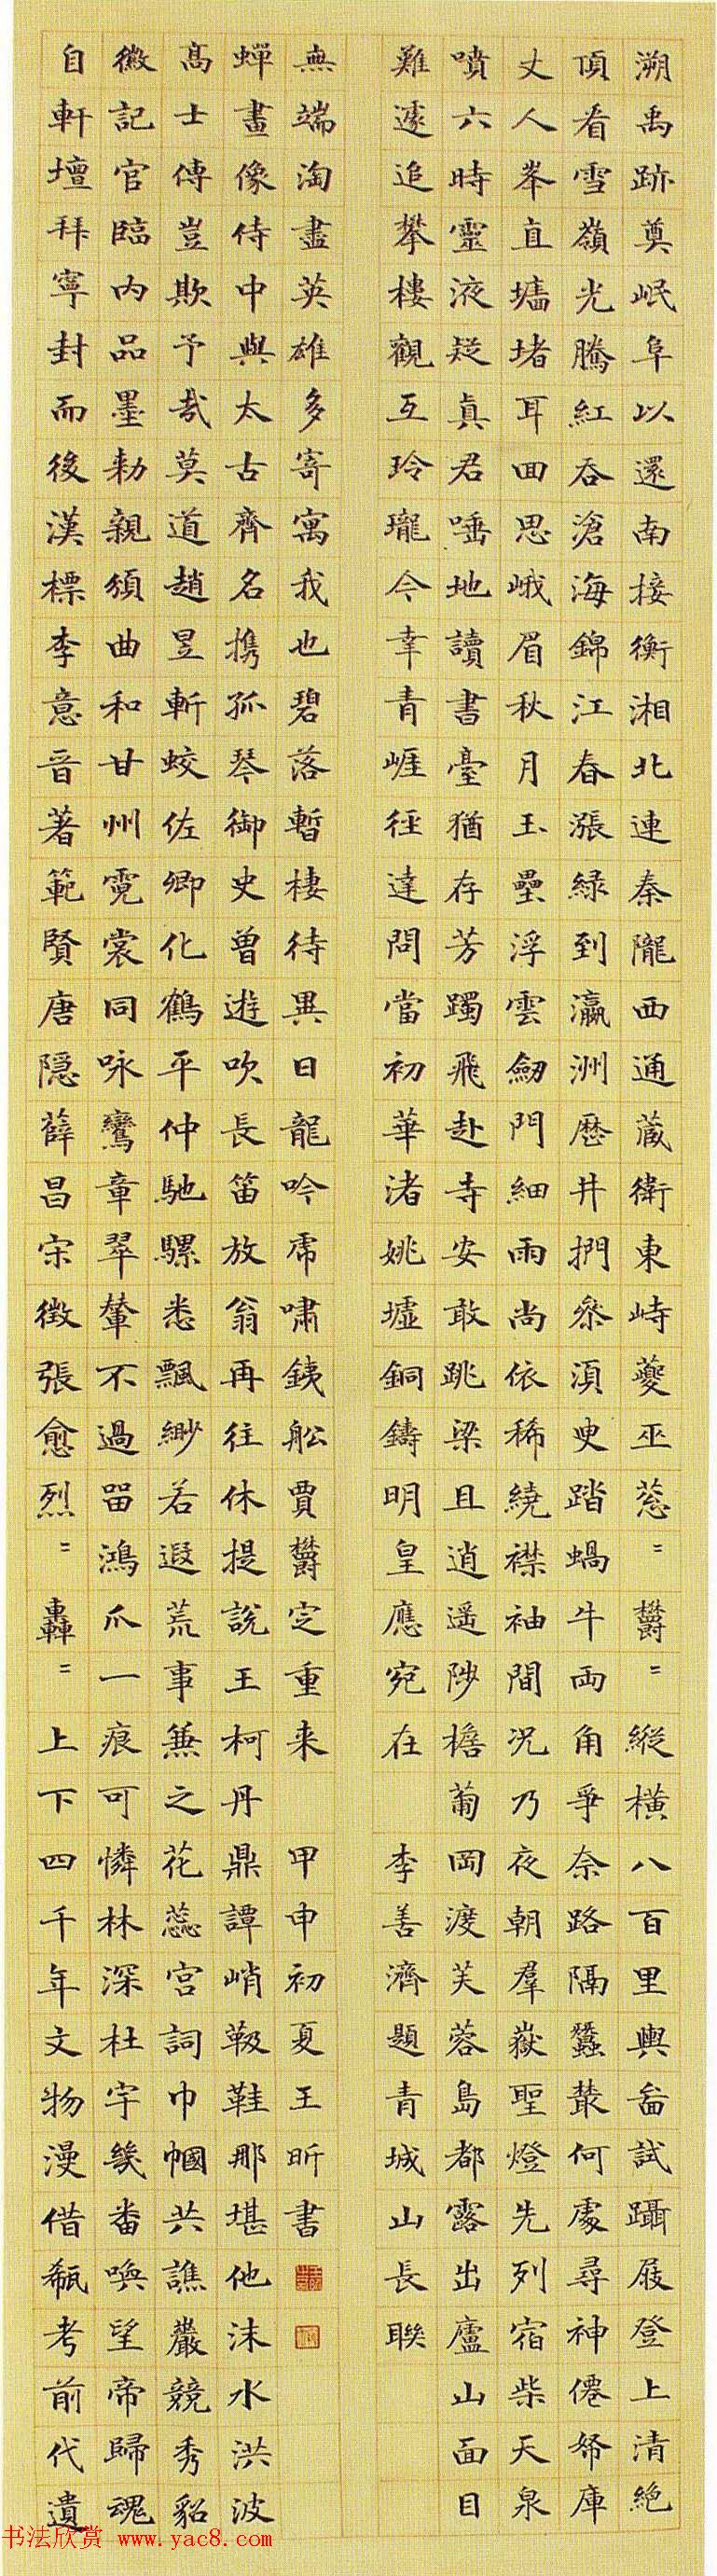 溯禹跡奠岷阜以還南接衡湘北連秦隴西通藏衛東峙夔巫葱〻鬱〻縱橫八百里輿啚試躡屐登上清絕
頂看雪嶺光騰紅吞滄海錦江春漲綠到瀛洲歷井捫參須臾踏蝸牛兩角爭奈路隔蠶叢何處尋神僊帑庫
丈人峯直墻堵耳回思峨眉秋月玉壘浮雲劒門細雨尚依稀繞襟袖間况乃夜朝羣嶽聖燈先列宿柴天泉
噴六時靈液疑真君唾地讀書臺猶存芳躅飛赴寺安敢跳梁且逍遥陟檐蔔岡渡芙蓉島都露出廬山面目
難遽追攀樓觀互玲瓏今幸青崕徑達問當初華渚姚墟銅鑄明皇應宛在 李善濟題青城山長聯
自軒壇拜寧封而後漢標李意晉著範賢唐隱薛昌宋徵張愈烈〻轟〻上下四千年文物漫借瓻考前代遺
徽記官臨內品墨勑親頒曲和甘州霓裳同咏鸞章翠輦不過畱鴻爪一痕可憐林深杜宇幾番喚望帝歸魂
高士傳豈欺予哉莫道趙昱斬蛟佐卿化鶴平仲馳騾悉飄緲若遐荒事兼之花蕊宮詞巾幗共譙巖競秀貂
蟬畫像侍中與太古齊名攜孤琴御史曾遊吹長笛放翁再往休提說王柯丹鼎譚峭靸鞋那堪他沫水洪波
無端淘盡英雄多寄寓我也碧落暫棲待異日龍吟虎嘯銕舩賈鬱定重来 甲申初夏王昕書
书法欣赏 www.yac8.com